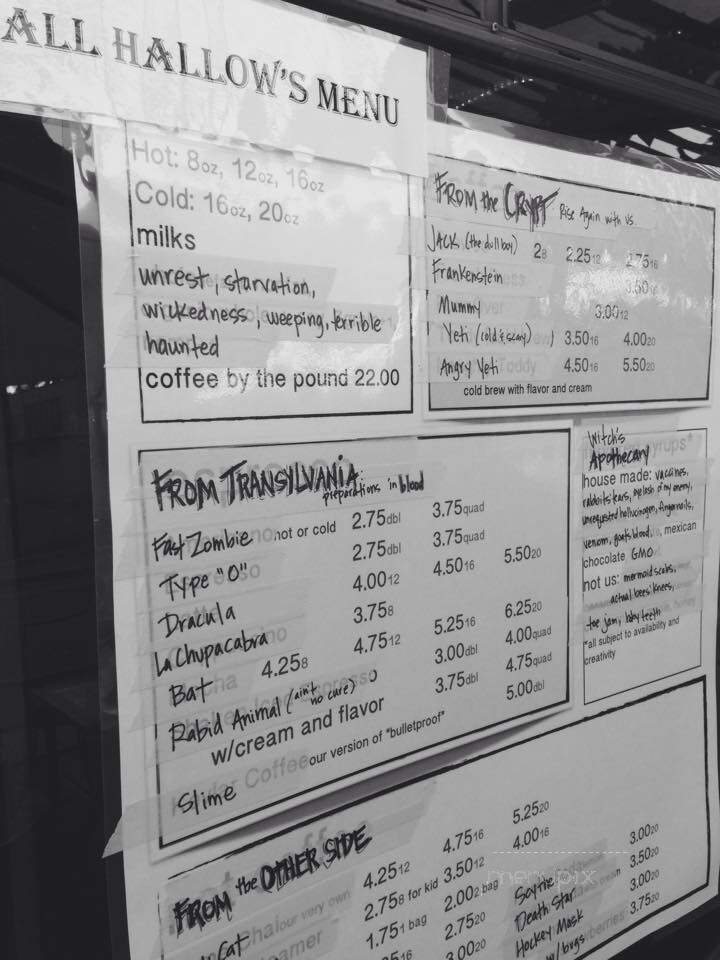 ALL HALLOW'S MENU
Hot: 8oz, 12oz, 16oz
Cold: 16oz, 20oz
milks
unrest, starvation,
wickedness, weeping, terrible
haunted
coffee by the pound 22.00
FROM the CRYPT Rise Again with us
JACK (the dull boy) 28 2.2512 2.7516
Frankenstein 3.5016
Mummy 3.0012
Yeti (cold & scary) 3.5016 4.0020
Angry Yeti 4.5016 5.5020
cold brew with flavor and cream
FROM TRANSYLVANIA preparations in blood
Fast Zombie hot or cold 2.75dbl 3.75quad
Type "O" 2.75dbl 3.75quad
Dracula 4.0012 4.5016 5.5020
La Chupacabra 3.758
Bat 4.258 4.7512 5.2516 6.2520
Rabid Animal (ain't no care) 3.00dbl 4.00quad
w/cream and flavor 3.75dbl 4.75quad
Slime our version of "bulletproof" 5.00dbl
Witch's
Apothecary
house made: vaccines,
rabbits ears, eyelash of my enemy,
unrequested hallucinogen, fingernails,
venom, goats blood, mexican
chocolate GMO
not us: mermaid scales,
actual bees' knees,
toe jam, baby teeth
*all subject to availability and
creativity
FROM the OTHER SIDE
4.2512 4.7516 5.2520
Cat our very own 2.758 for kid 3.5012 4.0016
1.751 bag 2.002 bag Scythe 3.0020
2.7520 Death Star 3.5020
3.0020 Hockey Mask 3.0020
w/ bugs 3.7520
menupix